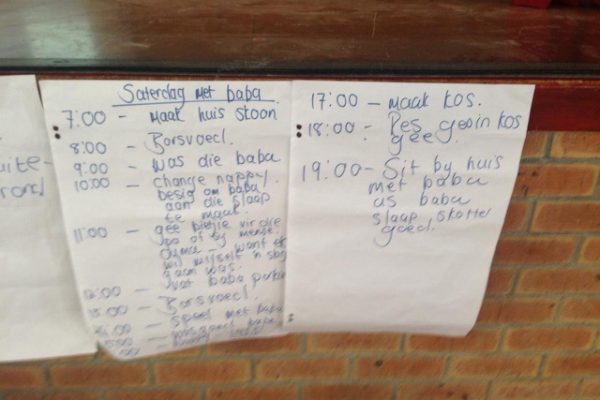 uite-
rond
Saterdag met baba
7:00 - Maak huis skoon
8:00 - Borsvoed.
9:00 - Was die baba
10:00 - change nappy
besig om baba
aan die slaap
te maak.
11:00 - gee bietjie vir die
pa of by mense.
want ek
wil myself 'n
gaan was.
Vat baba
12:00 - Borsvoed.
- Speel met baba
baba
17:00 - Maak kos.
18:00 - Bes gesin kos
gee.
19:00 - Sit by huis
met baba
as baba
slaap, skottel
goed.